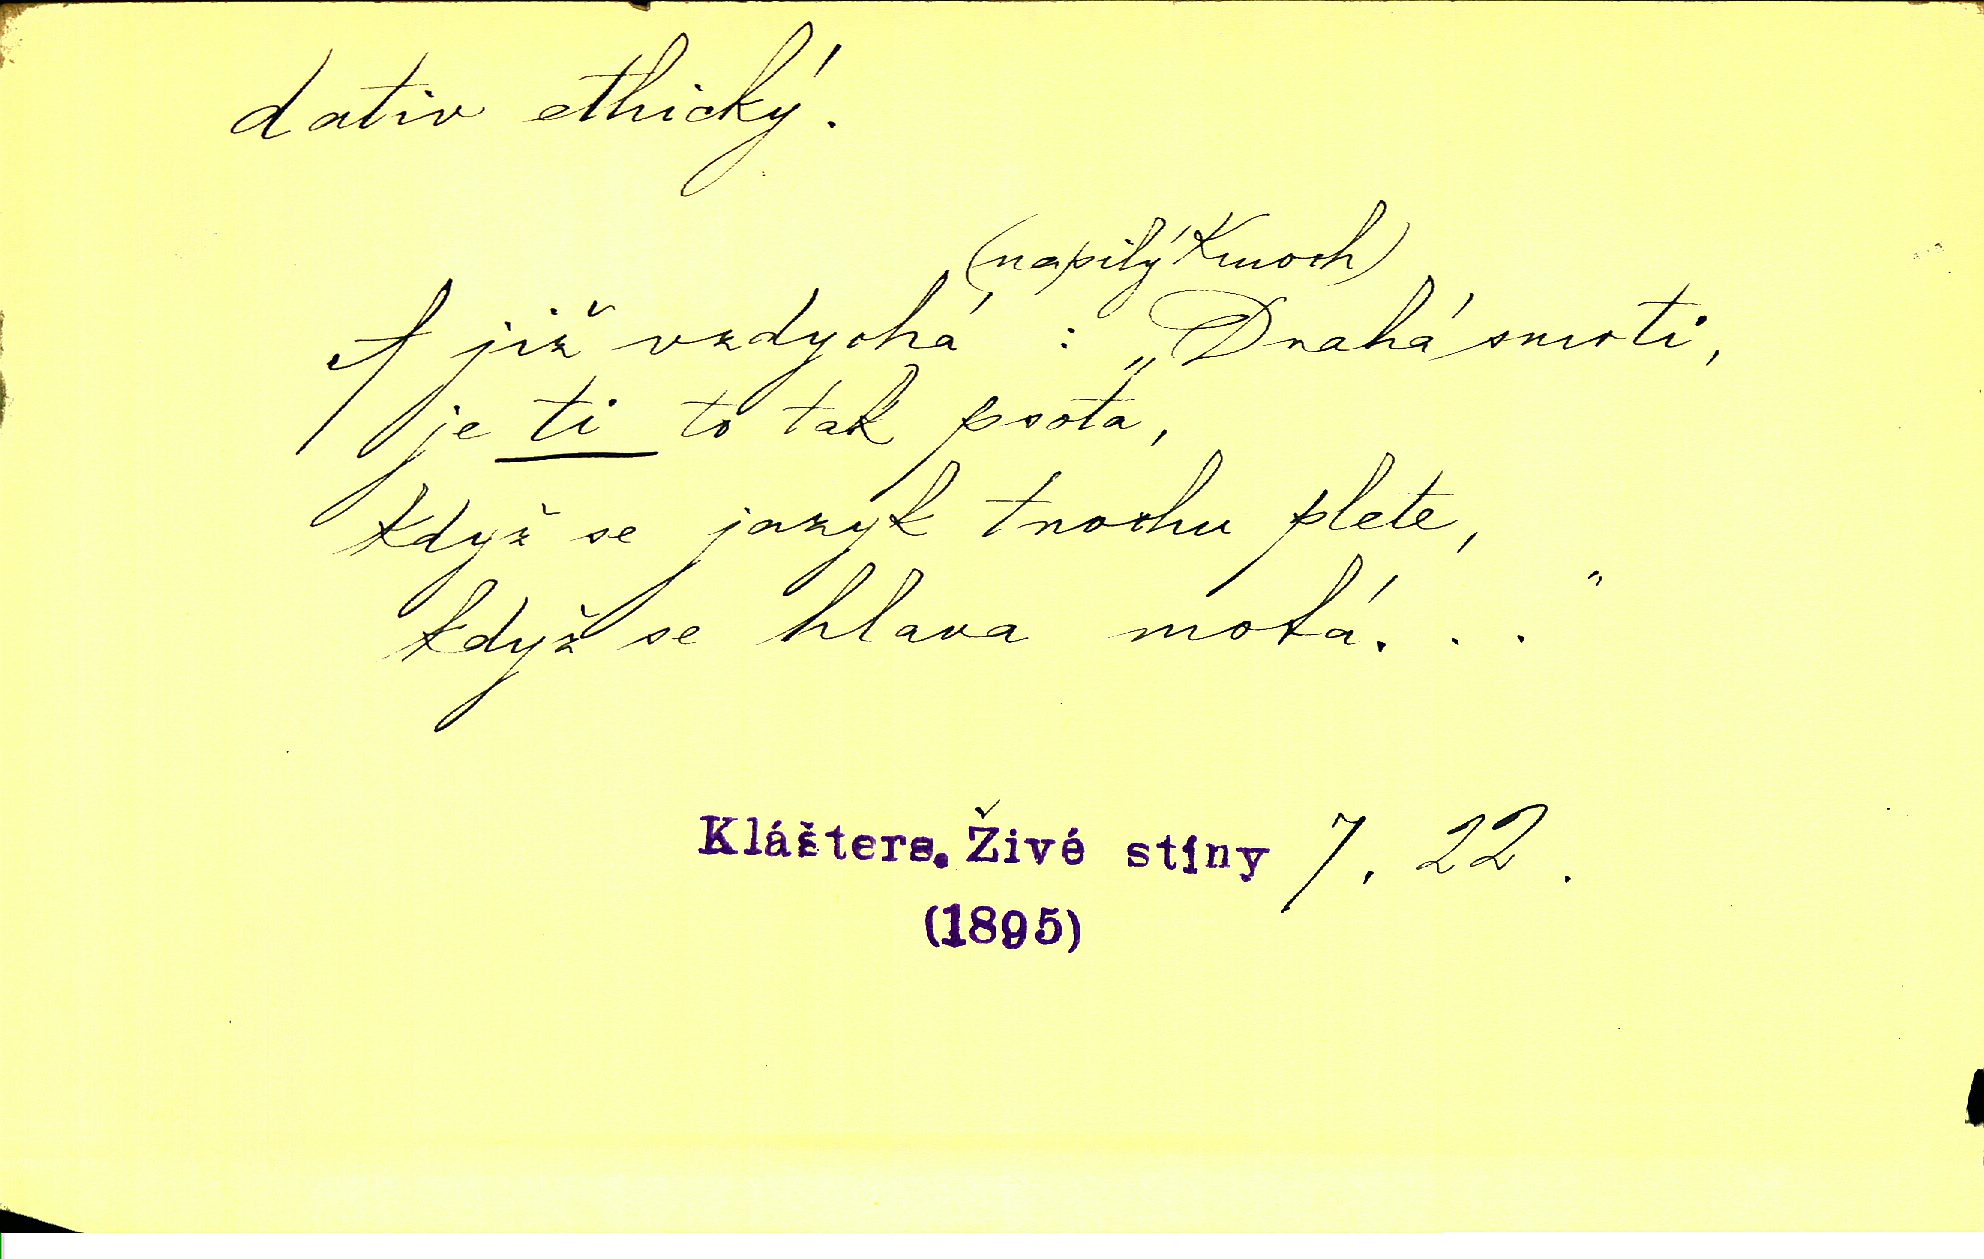 dativ ethický.
(napilý Kmoch)
A již vzdychá : „Drahá smrti,
je ti to tak psota,
když se jazyk trochu plete,
když se hlava motá. . . "
Klášters. Živé stíny 7. 22.
(1895)